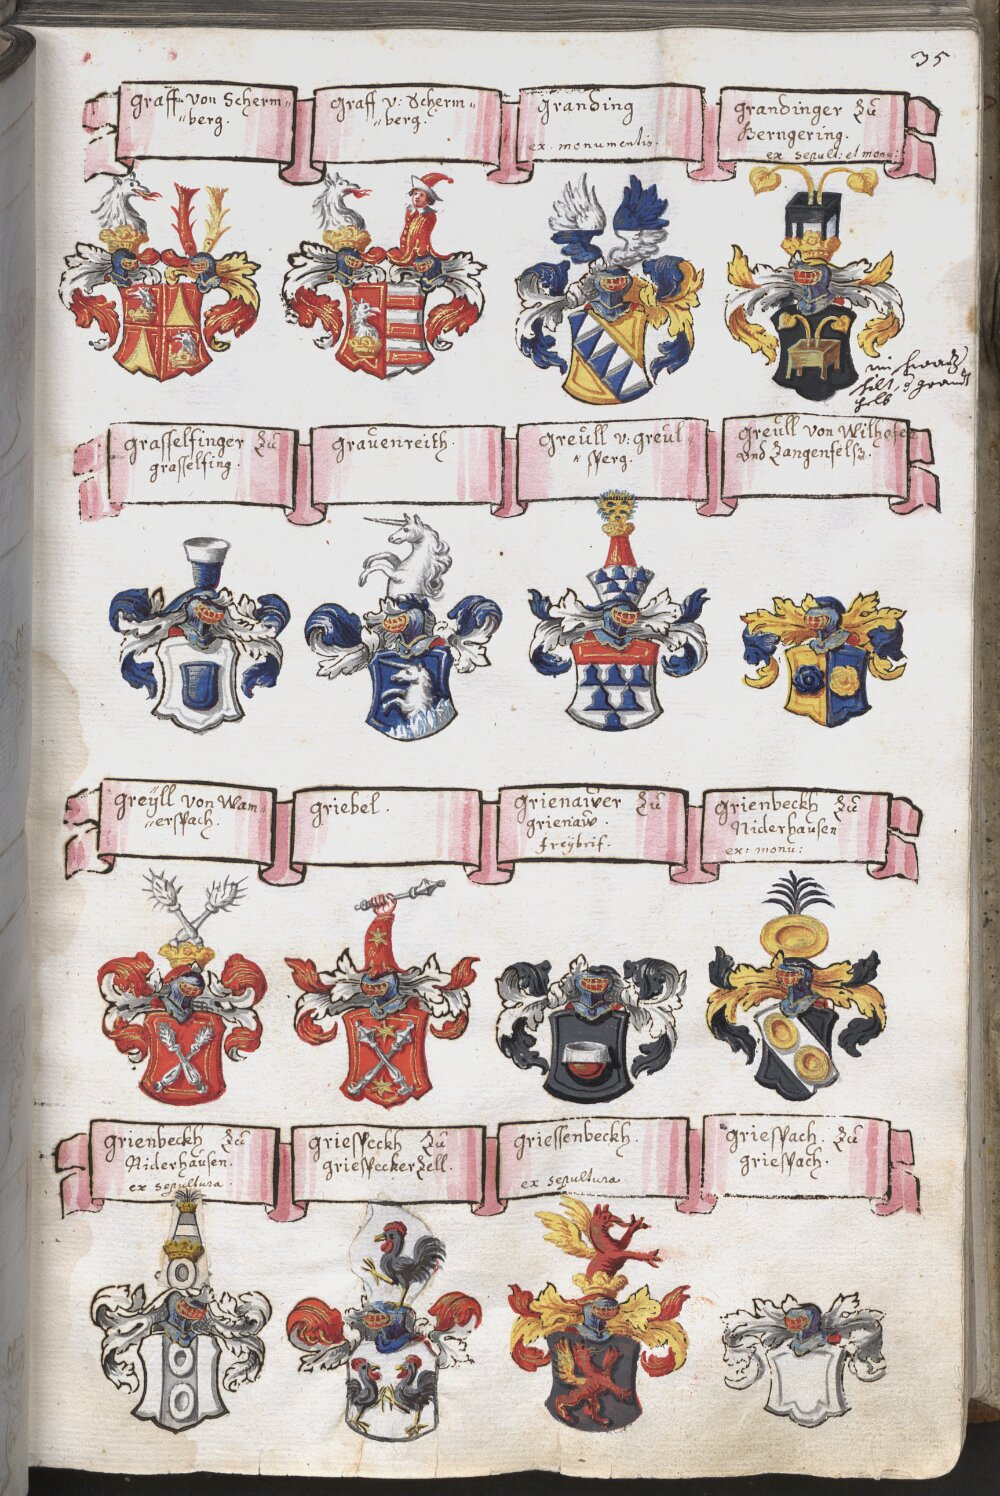 35
Graff von Scherm=
=berg.
Graff v: Scherm=
=berg.
Granding
ex. monumentis.
Grandinger Zů
Berngering.
ex sepult: et monu:
helb
Grasselfinger Zů
grasselfing.
Graůenreith.
Greůll v: greůl=
=sperg.
Greůll von Wilhofen
Vnd Zangenfelß.
Greÿll von Wam=
=erspach.
Griebel.
Grienawer Zů
grienaw.
freÿbrif.
Grienbeckh Zů
Niderhaůsen
ex: monu:
Grienbeckh Zů
Niderhaůsen.
ex sepultura.
Griespeckh Zů
griespeckerZell.
Griessenbeckh.
ex sepultura
Griespach. Zů
griespach.